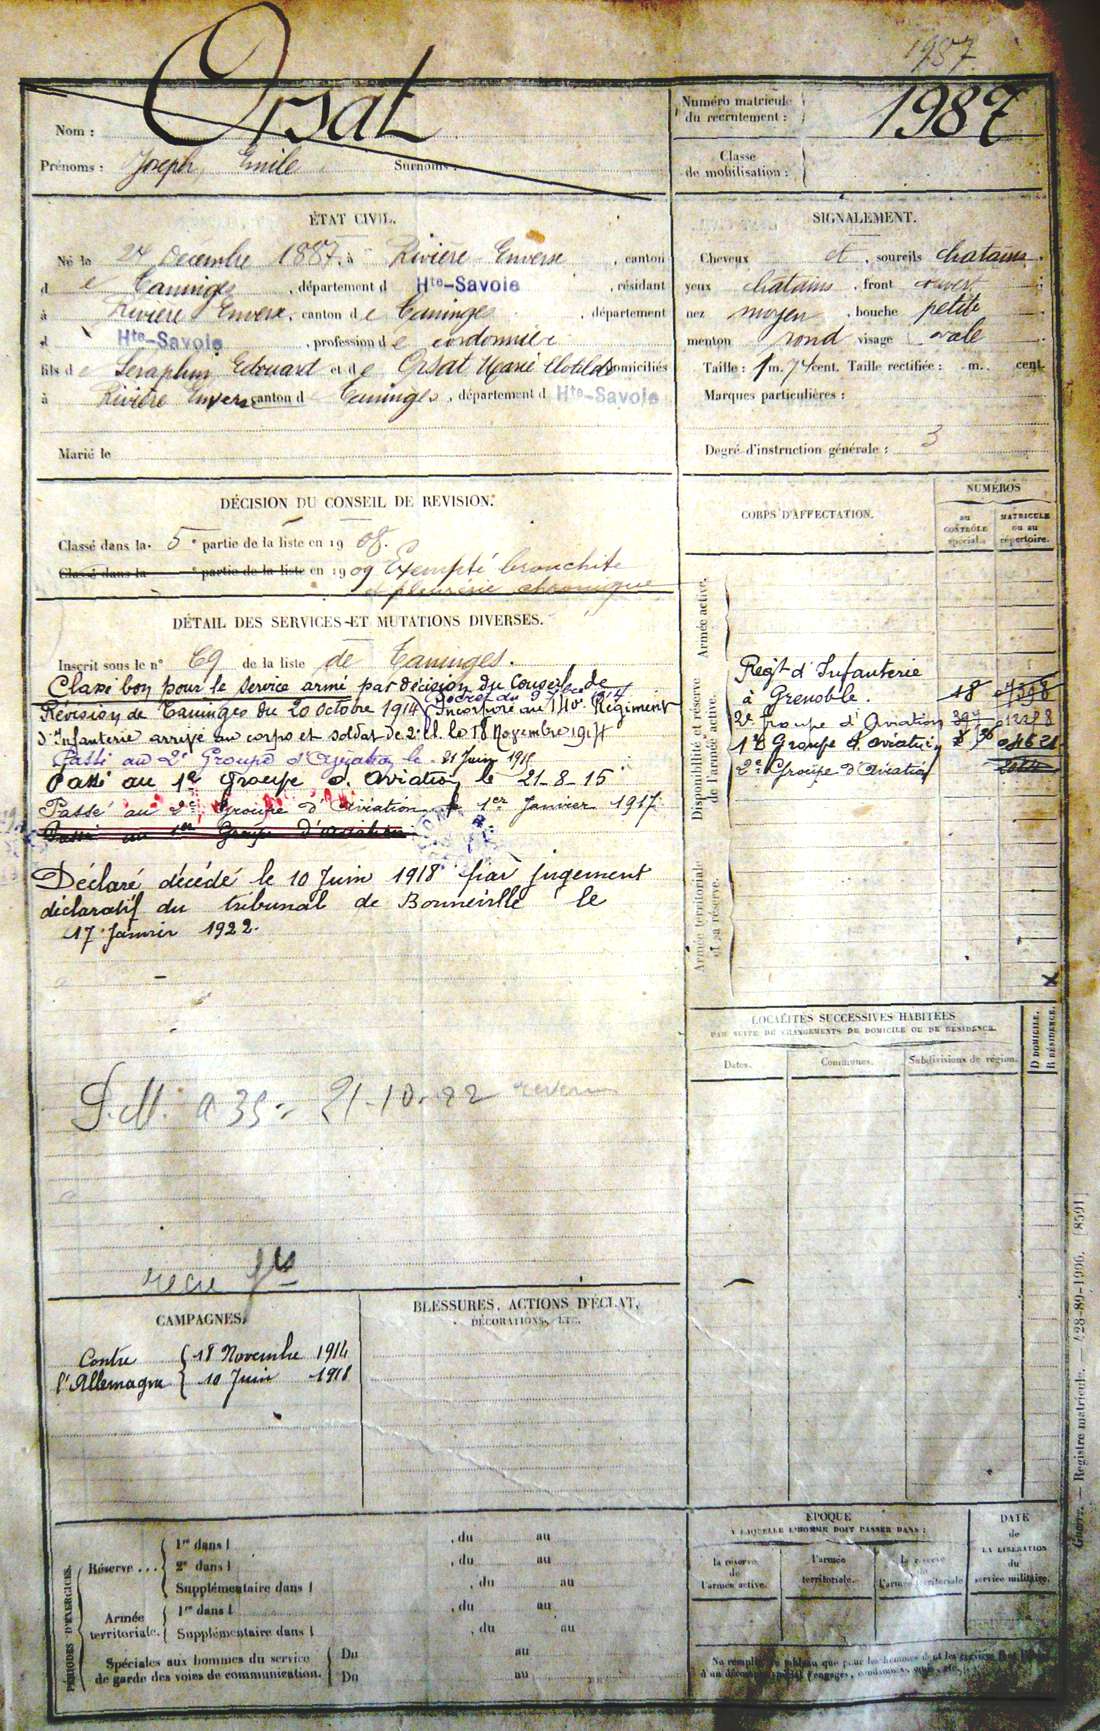 1987
Nom : Orsat
Prénoms : Joseph Emile Surnoms :
Numéro matricule du recrutement : 1987
Classe de mobilisation :
ÉTAT CIVIL.
Né le 24 Décembre 1887, à Rivière Enverse, canton
de Taninges, département d Hte-Savoie, résidant
à Rivière Enverse, canton de Taninges, département
d Hte-Savoie, profession de cordonnier
fils de Séraphin Edouard et de Orsat Marie Clotilde domiciliés
à Rivière Enverse canton d Taninges, département d Hte-Savoie
Marié le
SIGNALEMENT.
Cheveux et, sourcils chatains
yeux chatains, front ouvert
nez moyen, bouche petite
menton rond visage ovale
Taille : 1 m. 74 cent. Taille rectifiée : m. cent.
Marques particulières :
Degré d'instruction générale : 3
DÉCISION DU CONSEIL DE REVISION.
Classé dans la 5e partie de la liste en 1908.
Classé dans la e partie de la liste en 1909 Exempté bronchite
et pleurésie chronique
DÉTAIL DES SERVICES ET MUTATIONS DIVERSES.
Inscrit sous le n° 69 de la liste de Taninges.
Classé bon pour le service armé par décision du Conseil de
Révision de Taninges du 20 octobre 1914 Incorporé au 140e Régiment
d'Infanterie arrivé au corps et soldat de 2e cl. le 18 Novembre 1914
Passé au 2e Groupe d'Aviation le 21 Juin 1915
Passé au 1er Groupe d'Aviation le 21-8-15
Passé au 2e Groupe d'Aviation le 1er Janvier 1917
Passé au 1er Groupe d'aviation
Déclaré décédé le 10 Juin 1918 par jugement
déclaratif du tribunal de Bonneville le
17 Janvier 1922.
21-10-22
CORPS D'AFFECTATION.
NUMÉROS
au contrôle spécial.
MATRICULE ou au répertoire.
Armée active.
Disponibilité et réserve de l'armée active.
Régt d'Infanterie
à Grenoble. 18
2e Groupe d'Aviation
1er Groupe d'aviation
2e Groupe d'Aviation
Armée territoriale et sa réserve.
LOCALITÉS SUCCESSIVES HABITÉES
PAR SUITE DE CHANGEMENTS DE DOMICILE OU DE RÉSIDENCE.
Dates. Communes. Subdivisions de région. D DOMICILE. R RÉSIDENCE.
CAMPAGNES.
Contre l'Allemagne { 18 Novembre 1914
10 Juin 1918
BLESSURES, ACTIONS D'ÉCLAT,
DÉCORATIONS, ETC.
PÉRIODES D'EXERCICES.
Réserve ... 1re dans l , du au
2e dans l , du au
Supplémentaire dans l , du au
Armée territoriale. 1re dans l , du au
Supplémentaire dans l , du au
Spéciales aux hommes du service
de garde des voies de communication. Du au
Du au
ÉPOQUE
À LAQUELLE L'HOMME DOIT PASSER DANS :
la réserve de l'armée active.
l'armée territoriale.
la réserve de l'armée territoriale
DATE de LA LIBÉRATION du service militaire.
Guerre. — Registre matricule. — 428-89-1906. [8591]